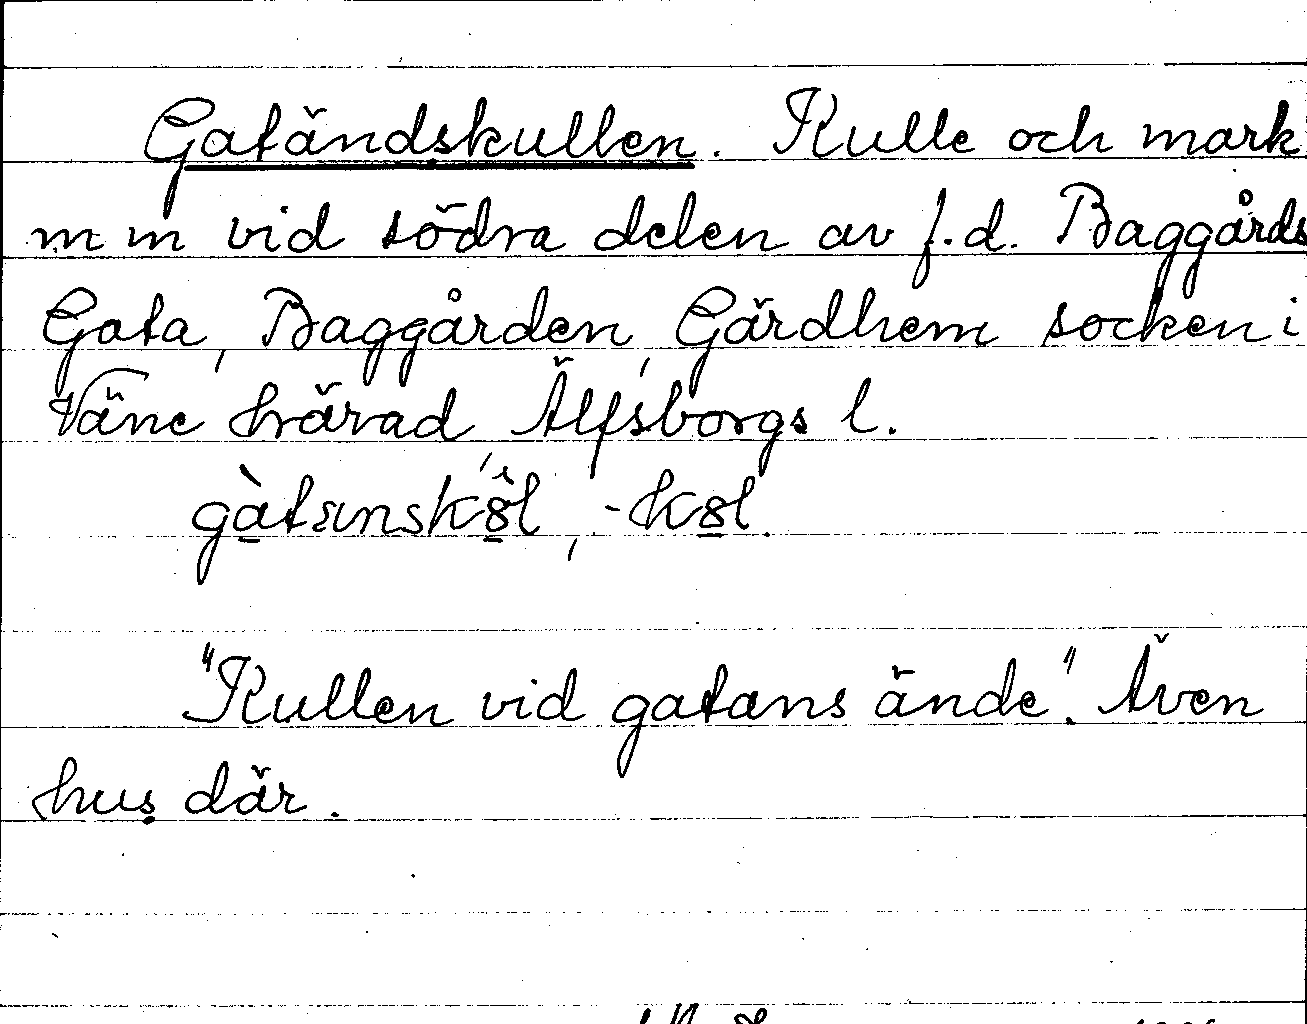 Gatändskullen. Kulle och mark
m m vid södra delen av f.d. Baggårds
Gata, Baggården, Gärdhem socken i
Väne härad, Älfsborgs l.
"Kullen vid gatans ände". Även
hus där.